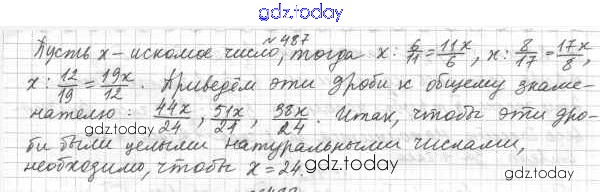 gdz.today
№487
Пусть x – искомое число, тогда x : 6/11 = 11x/6, x : 8/17 = 17x/8,
x : 12/19 = 19x/12. Приведём эти дроби к общему знаме-
нателю: 44x/24, 51x/24, 38x/24. Итак, чтобы эти дро-
gdz.today
gdz.today
би были целыми натуральными числами,
необходимо, чтобы x = 24.
gdz.today